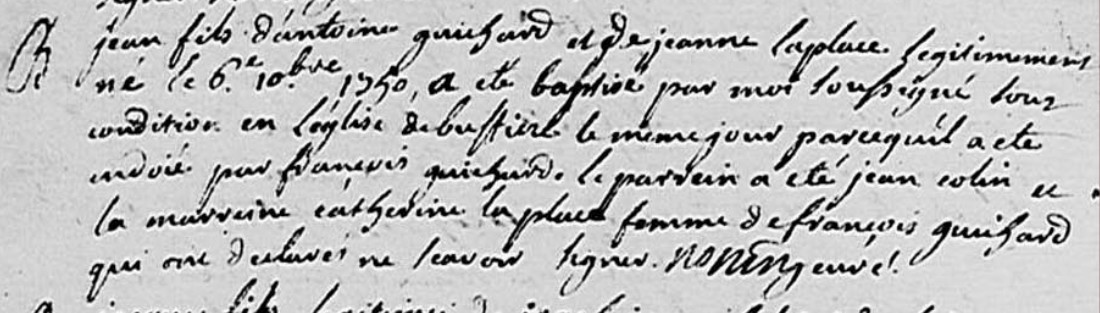 B jean fils d'antoine guichard et de jeanne laplace legitimement
né le 6.e 10.bre 1750, a eté baptisé par moi soussigné sous
condition en l'église de bussiere le meme jour parcequil a eté
ondoié par françois guichard. le parrein a eté jean colin et
la marreine catherine la place femme de françois guichard
qui ont declarés ne scavoir signer. curé.
fils legitime de